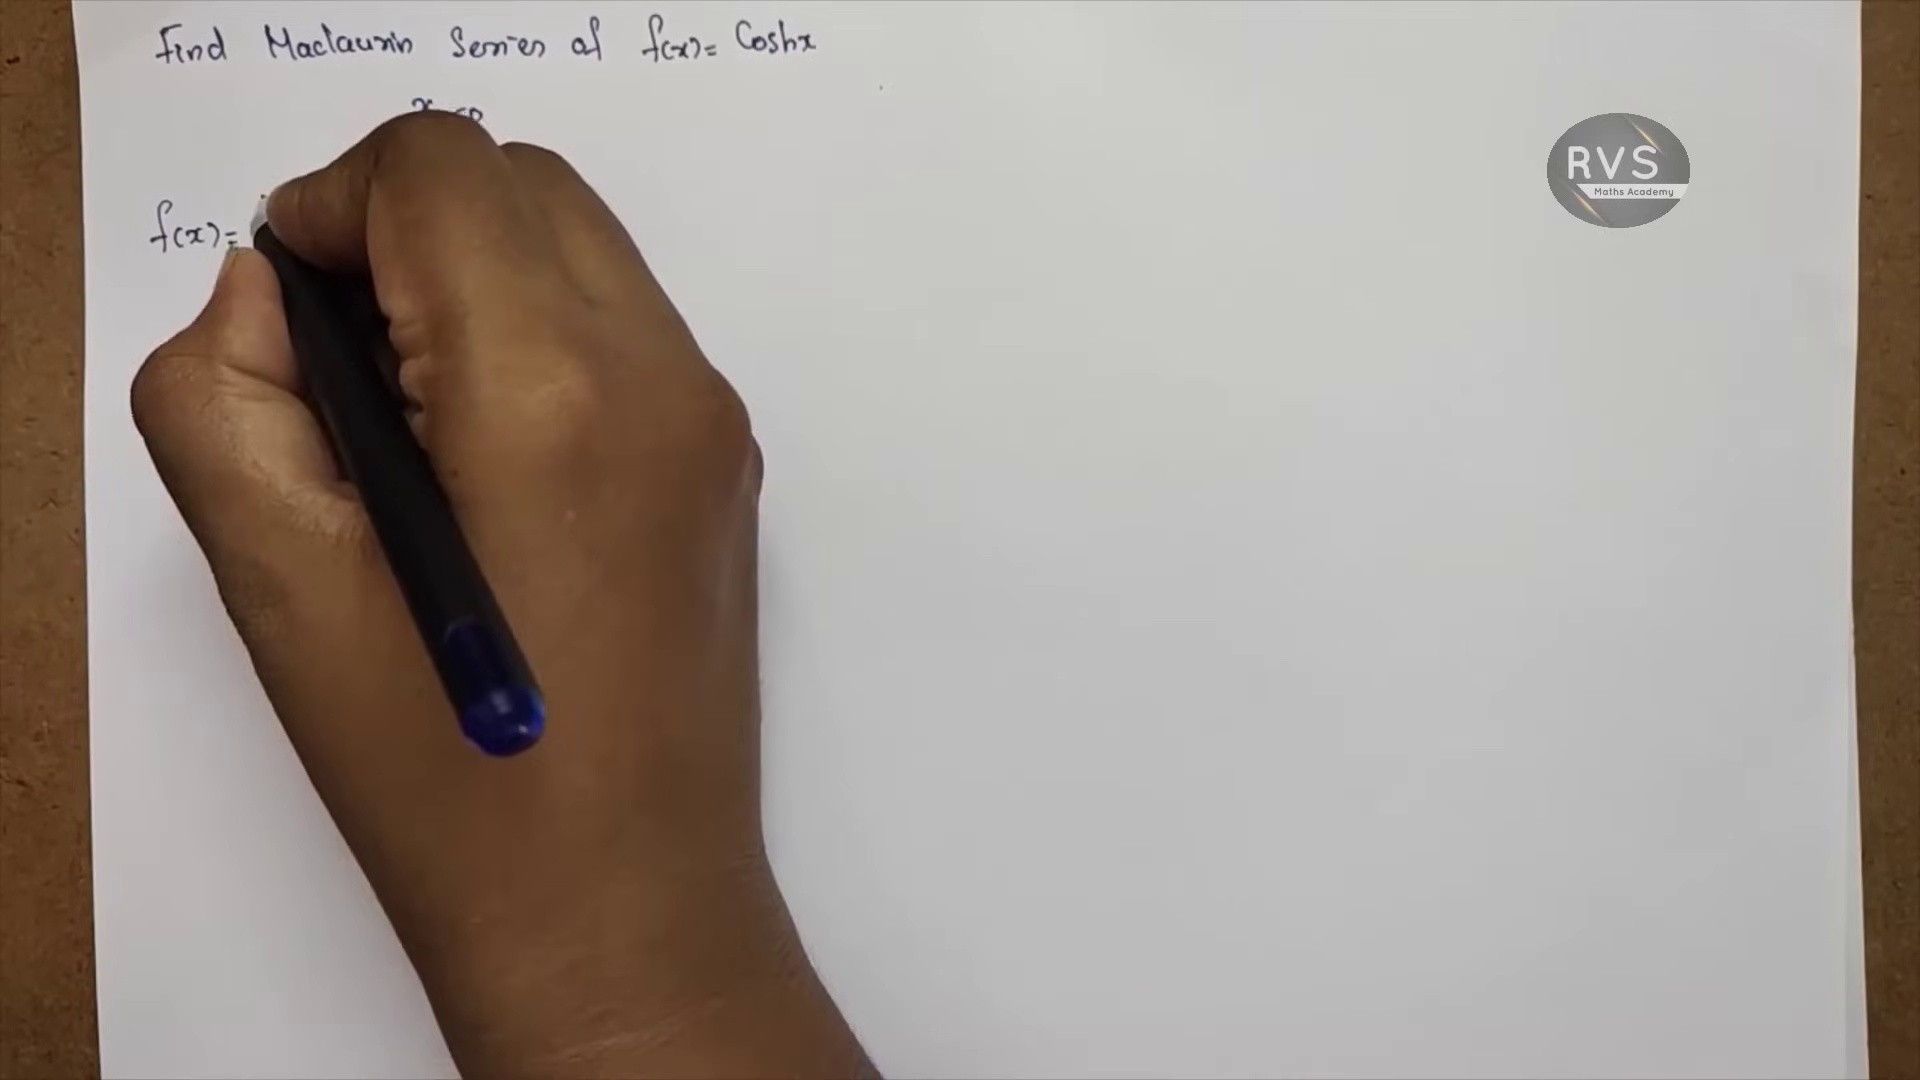 Find Maclaurin Series of f(x) = Coshx
RVS
Maths Academy
f(x) =